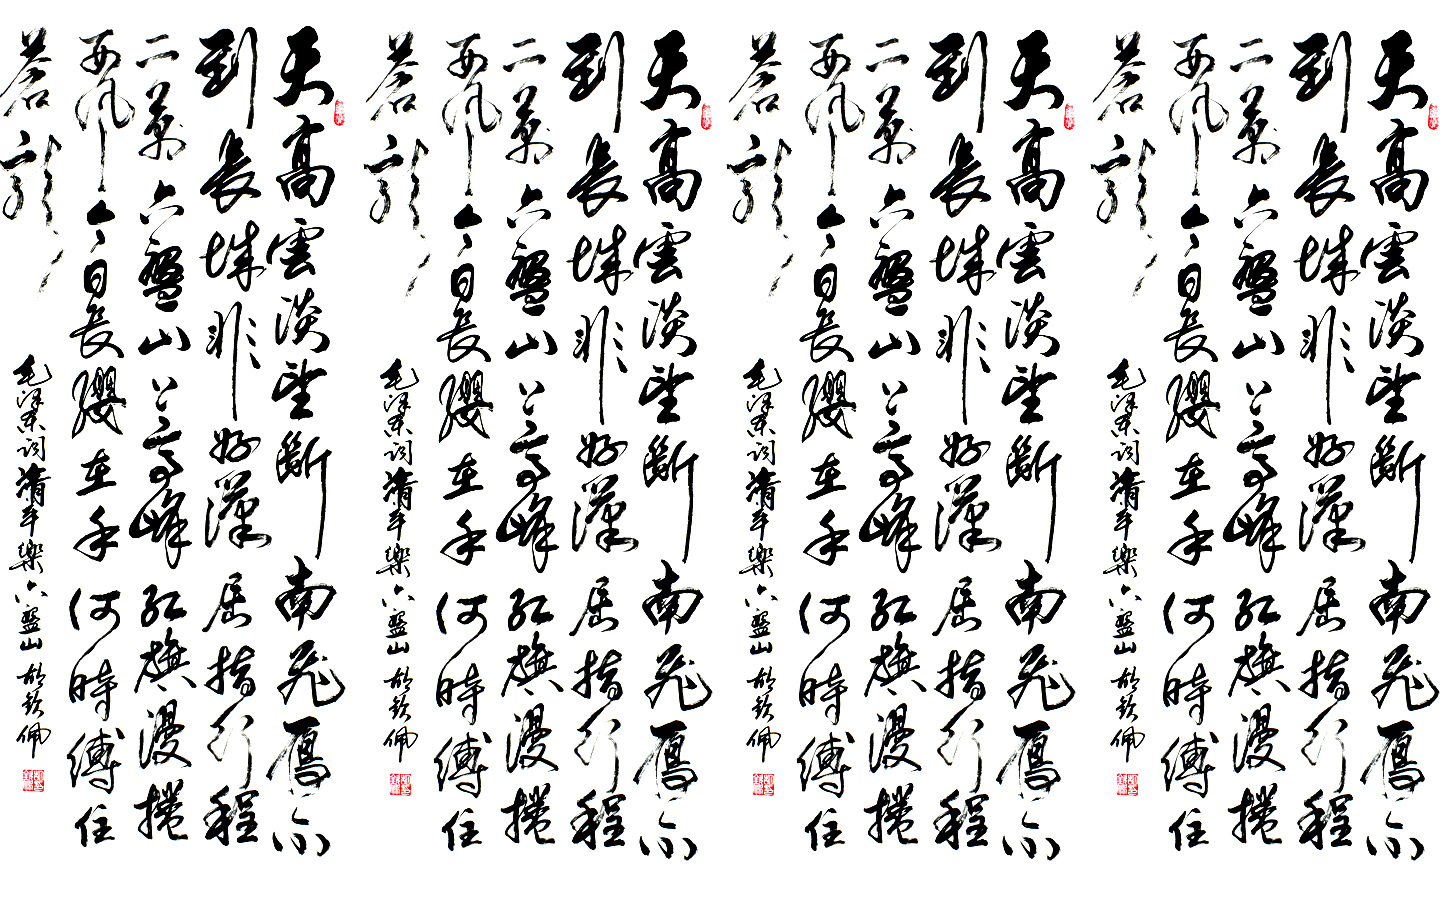 天高雲淡望斷南飛雁不
到長城非好漢屈指行程
二萬六盤山上高峰紅旗漫捲
西風今日長纓在手何時縛住
蒼龍
毛澤東詞清平樂六盤山
天高雲淡望斷南飛雁不
到長城非好漢屈指行程
二萬六盤山上高峰紅旗漫捲
西風今日長纓在手何時縛住
蒼龍
毛澤東詞清平樂六盤山
天高雲淡望斷南飛雁不
到長城非好漢屈指行程
二萬六盤山上高峰紅旗漫捲
西風今日長纓在手何時縛住
蒼龍
毛澤東詞清平樂六盤山
天高雲淡望斷南飛雁不
到長城非好漢屈指行程
二萬六盤山上高峰紅旗漫捲
西風今日長纓在手何時縛住
蒼龍
毛澤東詞清平樂六盤山